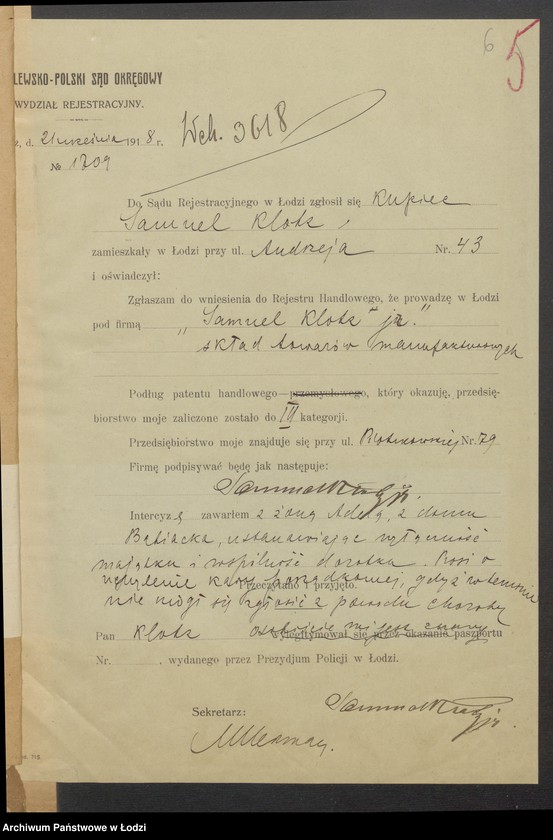 6 5
LEWSKO-POLSKI SĄD OKRĘGOWY
WYDZIAŁ REJESTRACYJNY.
ź, d. 21 września 1918 r. Wch. 3618
№ 1709
Do Sądu Rejestracyjnego w Łodzi zgłosił się Kupiec
Samuel Klotz,
zamieszkały w Łodzi przy ul. Andrzeja Nr. 43
i oświadczył:
Zgłaszam do wniesienia do Rejestru Handlowego, że prowadzę w Łodzi
pod firmą „Samuel Klotz jr."
skład towarów manufakturowych
Podług patentu handlowego przemysłowego, który okazuję, przedsię-
biorstwo moje zaliczone zostało do III kategorji.
Przedsiębiorstwo moje znajduje się przy ul. Piotrkowskiej Nr. 79
Firmę podpisywać będę jak następuje:
Samuel Klotz jr.
Intercyzę zawarłem z żoną Adelą, z domu
ustanawiając wyłączność
majątku i wspólność dorobku. Prosi o
uchylenie kary porządkowej, gdyż w terminie
Przeczytano i przyjęto.
nie mógł się zgłosić z powodu choroby
Pan Klotz osobiście mi jest znany
wylegitymował się przez okazanie paszportu
Nr. , wydanego przez Prezydjum Policji w Łodzi.
Sekretarz: Samuel Klotz jr.
718
Archiwum Państwowe w Łodzi